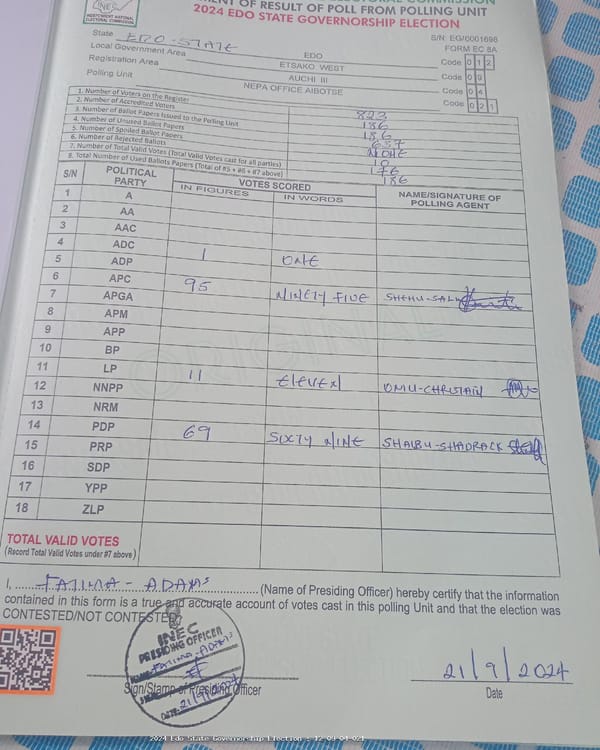 INDEPENDENT NATIONAL
ELECTORAL COMMISSION
OF RESULT OF POLL FROM POLLING UNIT
2024 EDO STATE GOVERNORSHIP ELECTION
S/N: EG/0001698
FORM EC 8A
State EDO-STATE EDO Code 0 1 2
Local Government Area ETSAKO WEST Code 0 9
Registration Area AUCHI III Code 0 4
Polling Unit NEPA OFFICE AIBOTSE Code 0 2 1
1. Number of Voters on the Register 823
2. Number of Accredited Voters 186
3. Number of Ballot Papers Issued to the Polling Unit
4. Number of Unused Ballot Papers 637
5. Number of Spoiled Ballot Papers NONE
6. Number of Rejected Ballots 10
7. Number of Total Valid Votes (Total Valid Votes cast for all parties) 176
8. Total Number of Used Ballots Papers (Total of #5 + #6 + #7 above) 186
S/N POLITICAL PARTY VOTES SCORED NAME/SIGNATURE OF POLLING AGENT
IN FIGURES IN WORDS
1 A
2 AA
3 AAC
4 ADC
5 ADP 1 ONE
6 APC 95 NINETY FIVE SHEHU-
7 APGA
8 APM
9 APP
10 BP
11 LP 11 ELEVEN OMU-CHRISTAIN
12 NNPP
13 NRM
14 PDP 69 SIXTY NINE SHAIBU-SHADRACK
15 PRP
16 SDP
17 YPP
18 ZLP
TOTAL VALID VOTES
(Record Total Valid Votes under #7 above)
ORIGINAL
I, FATIMA - ADAMS (Name of Presiding Officer) hereby certify that the information
contained in this form is a true and accurate account of votes cast in this polling Unit and that the election was
CONTESTED/NOT CONTESTED.
INEC
PRESIDING OFFICER
NAME: FATIMA-ADAMS
DATE: 21/9/2024
Sign/Stamp of Presiding Officer
21/9/2024
Date
2024 Edo State Governorship Election : 12-09-04-021